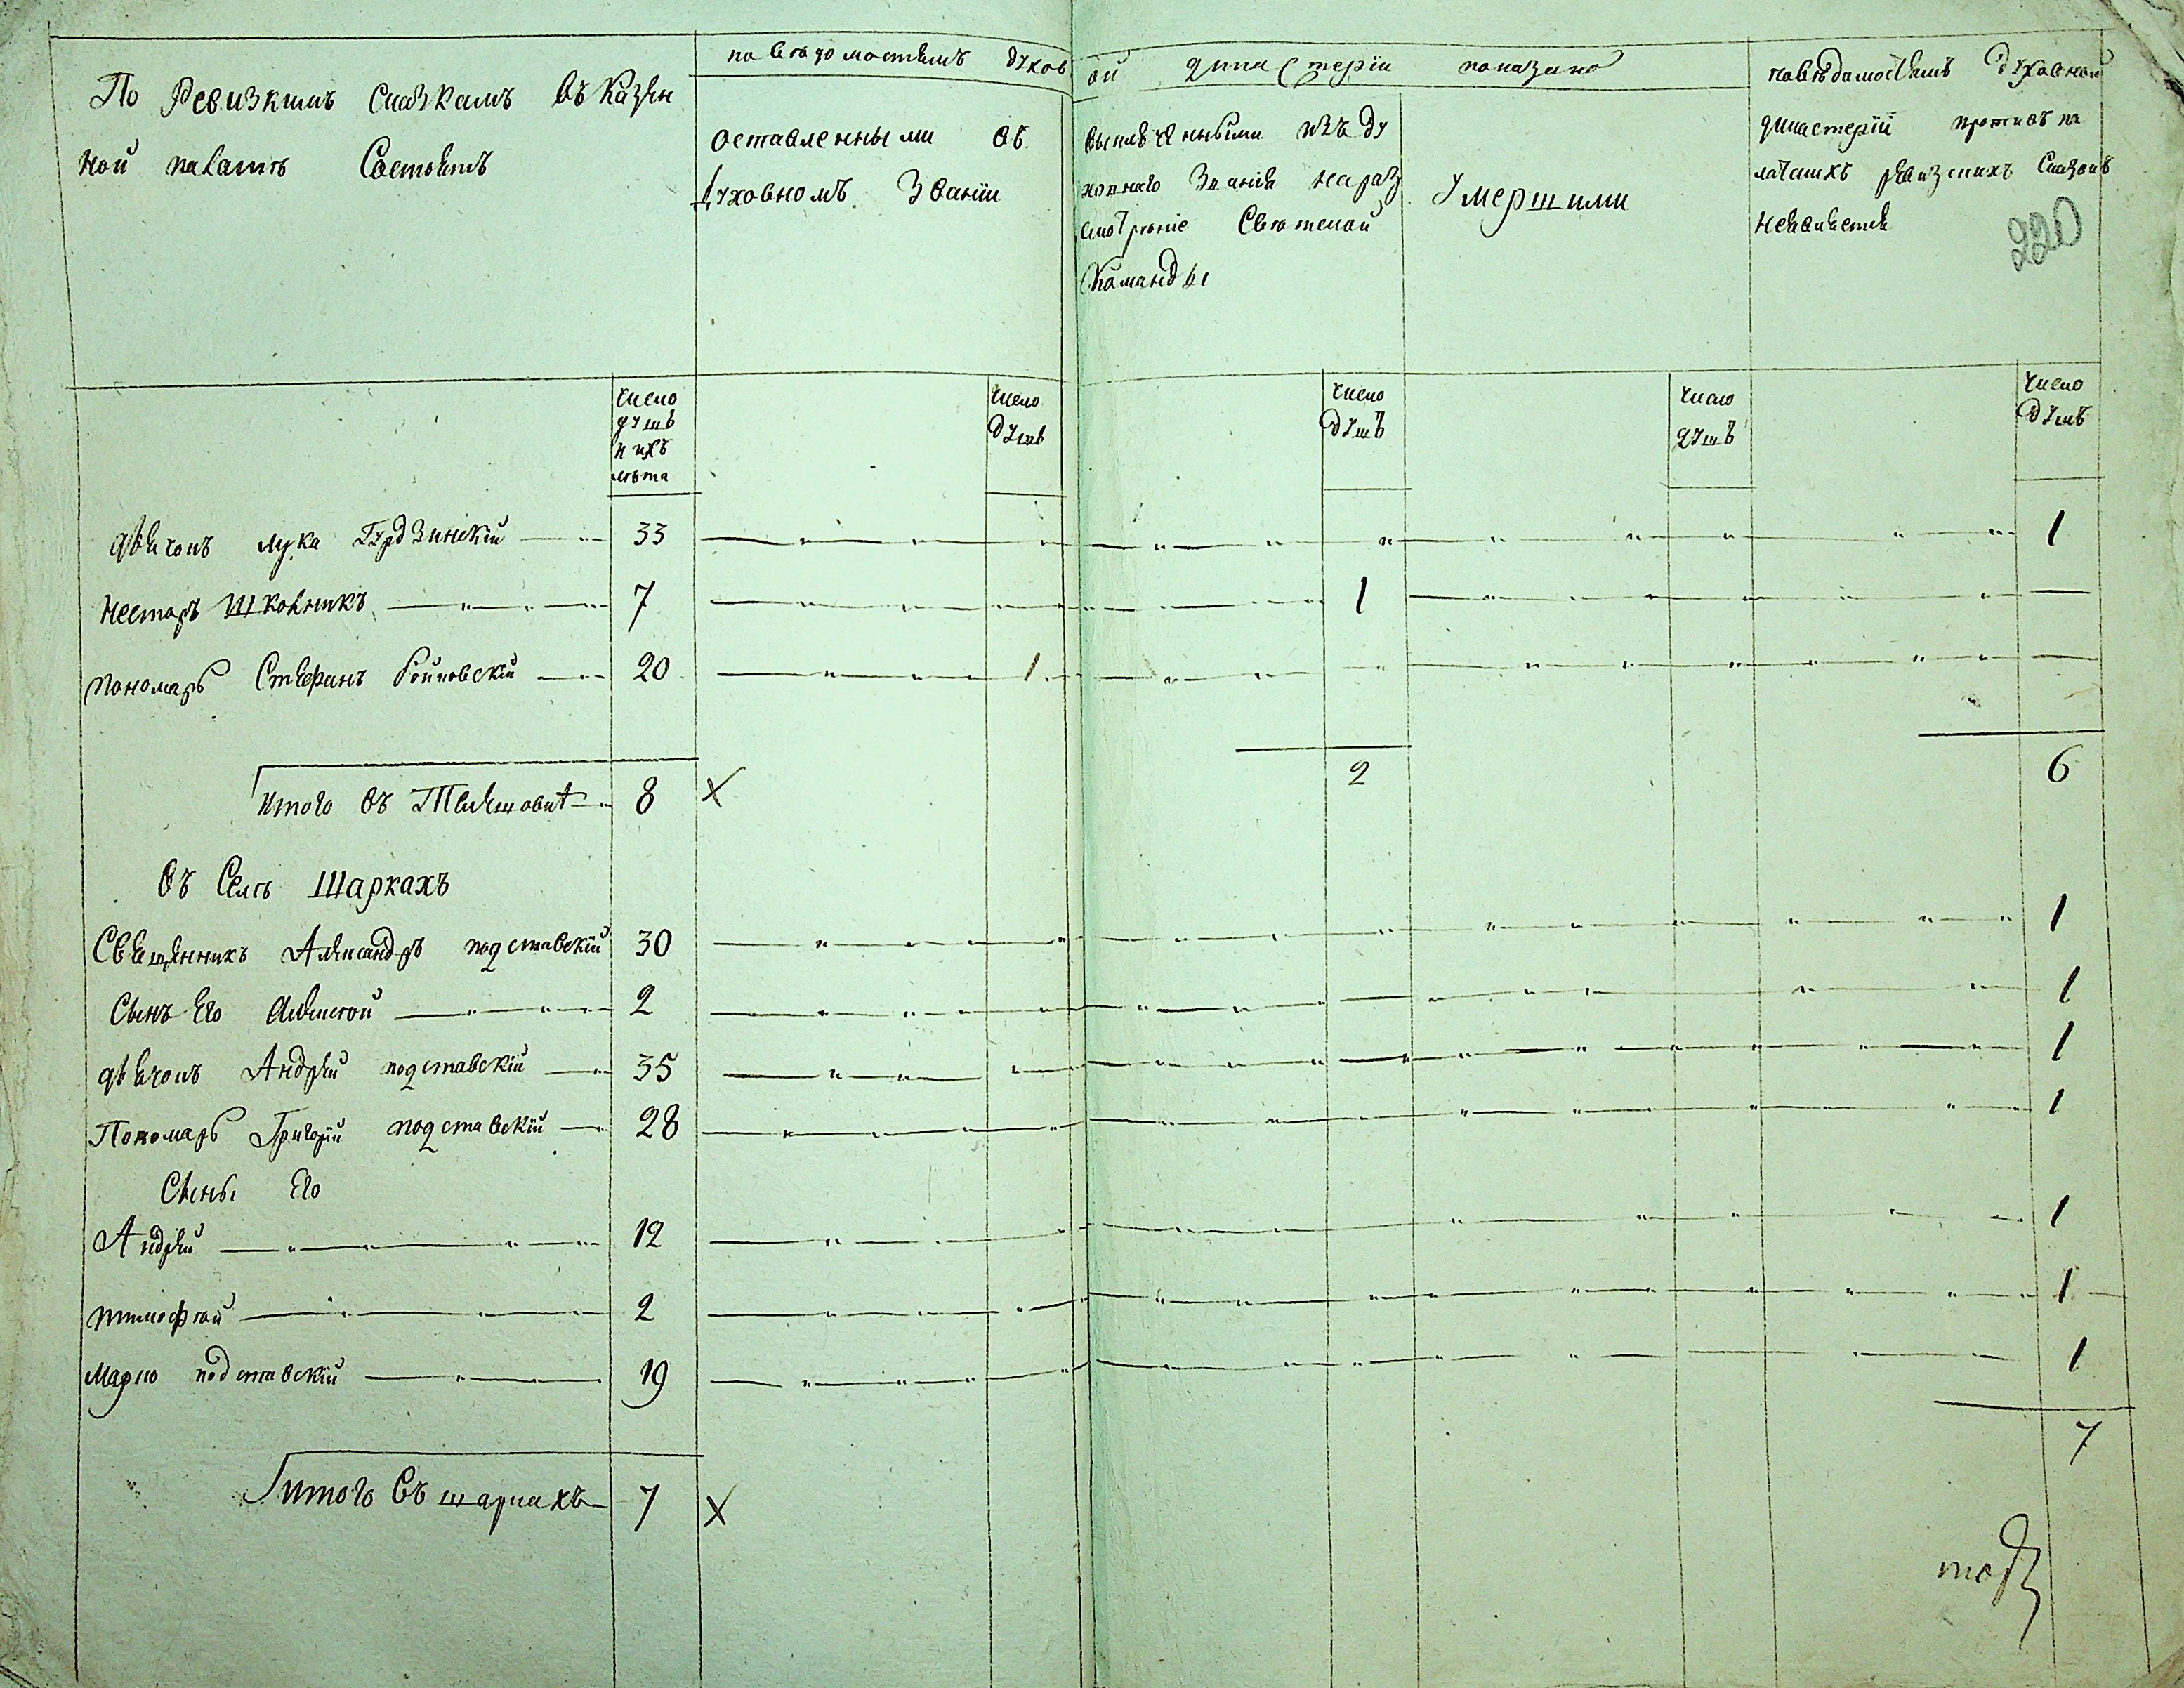 По Ревизкимъ Сказкамъ въ Казен
ной палатѣ Состоитъ
по вѣдомостямъ духов
ой дикастеріи показано
оставленными въ
духовномъ Званіи
выключенными изъ ду
ховнаго Званія на раз
смотреніе Светской
Команды
Умершими
по вѣдомостямъ духовной
дикастеріи противъ па
латскихъ ревизскихъ Сказокъ
неявляется
220
число
душъ
и ихъ
лѣта
число
душъ
число
душъ
число
душъ
число
душъ
дьячокъ лука Гудзинскій 33 1
Несторъ Школникъ 7 1
пономаръ Стефанъ 20 1
итого въ 8 X 2 6
въ Селѣ Шаркахъ
Священникъ Александръ подставскій 30 1
Сынъ Его Алексѣй 2 1
дьячокъ Андрей подставскій 35 1
Пономаръ Григорій подставскій 28 1
Сыны Его
Андрей 12 1
тимофѣй 2 1
Марко подставскій 19 1
7
итого въ шаркахъ 7 X